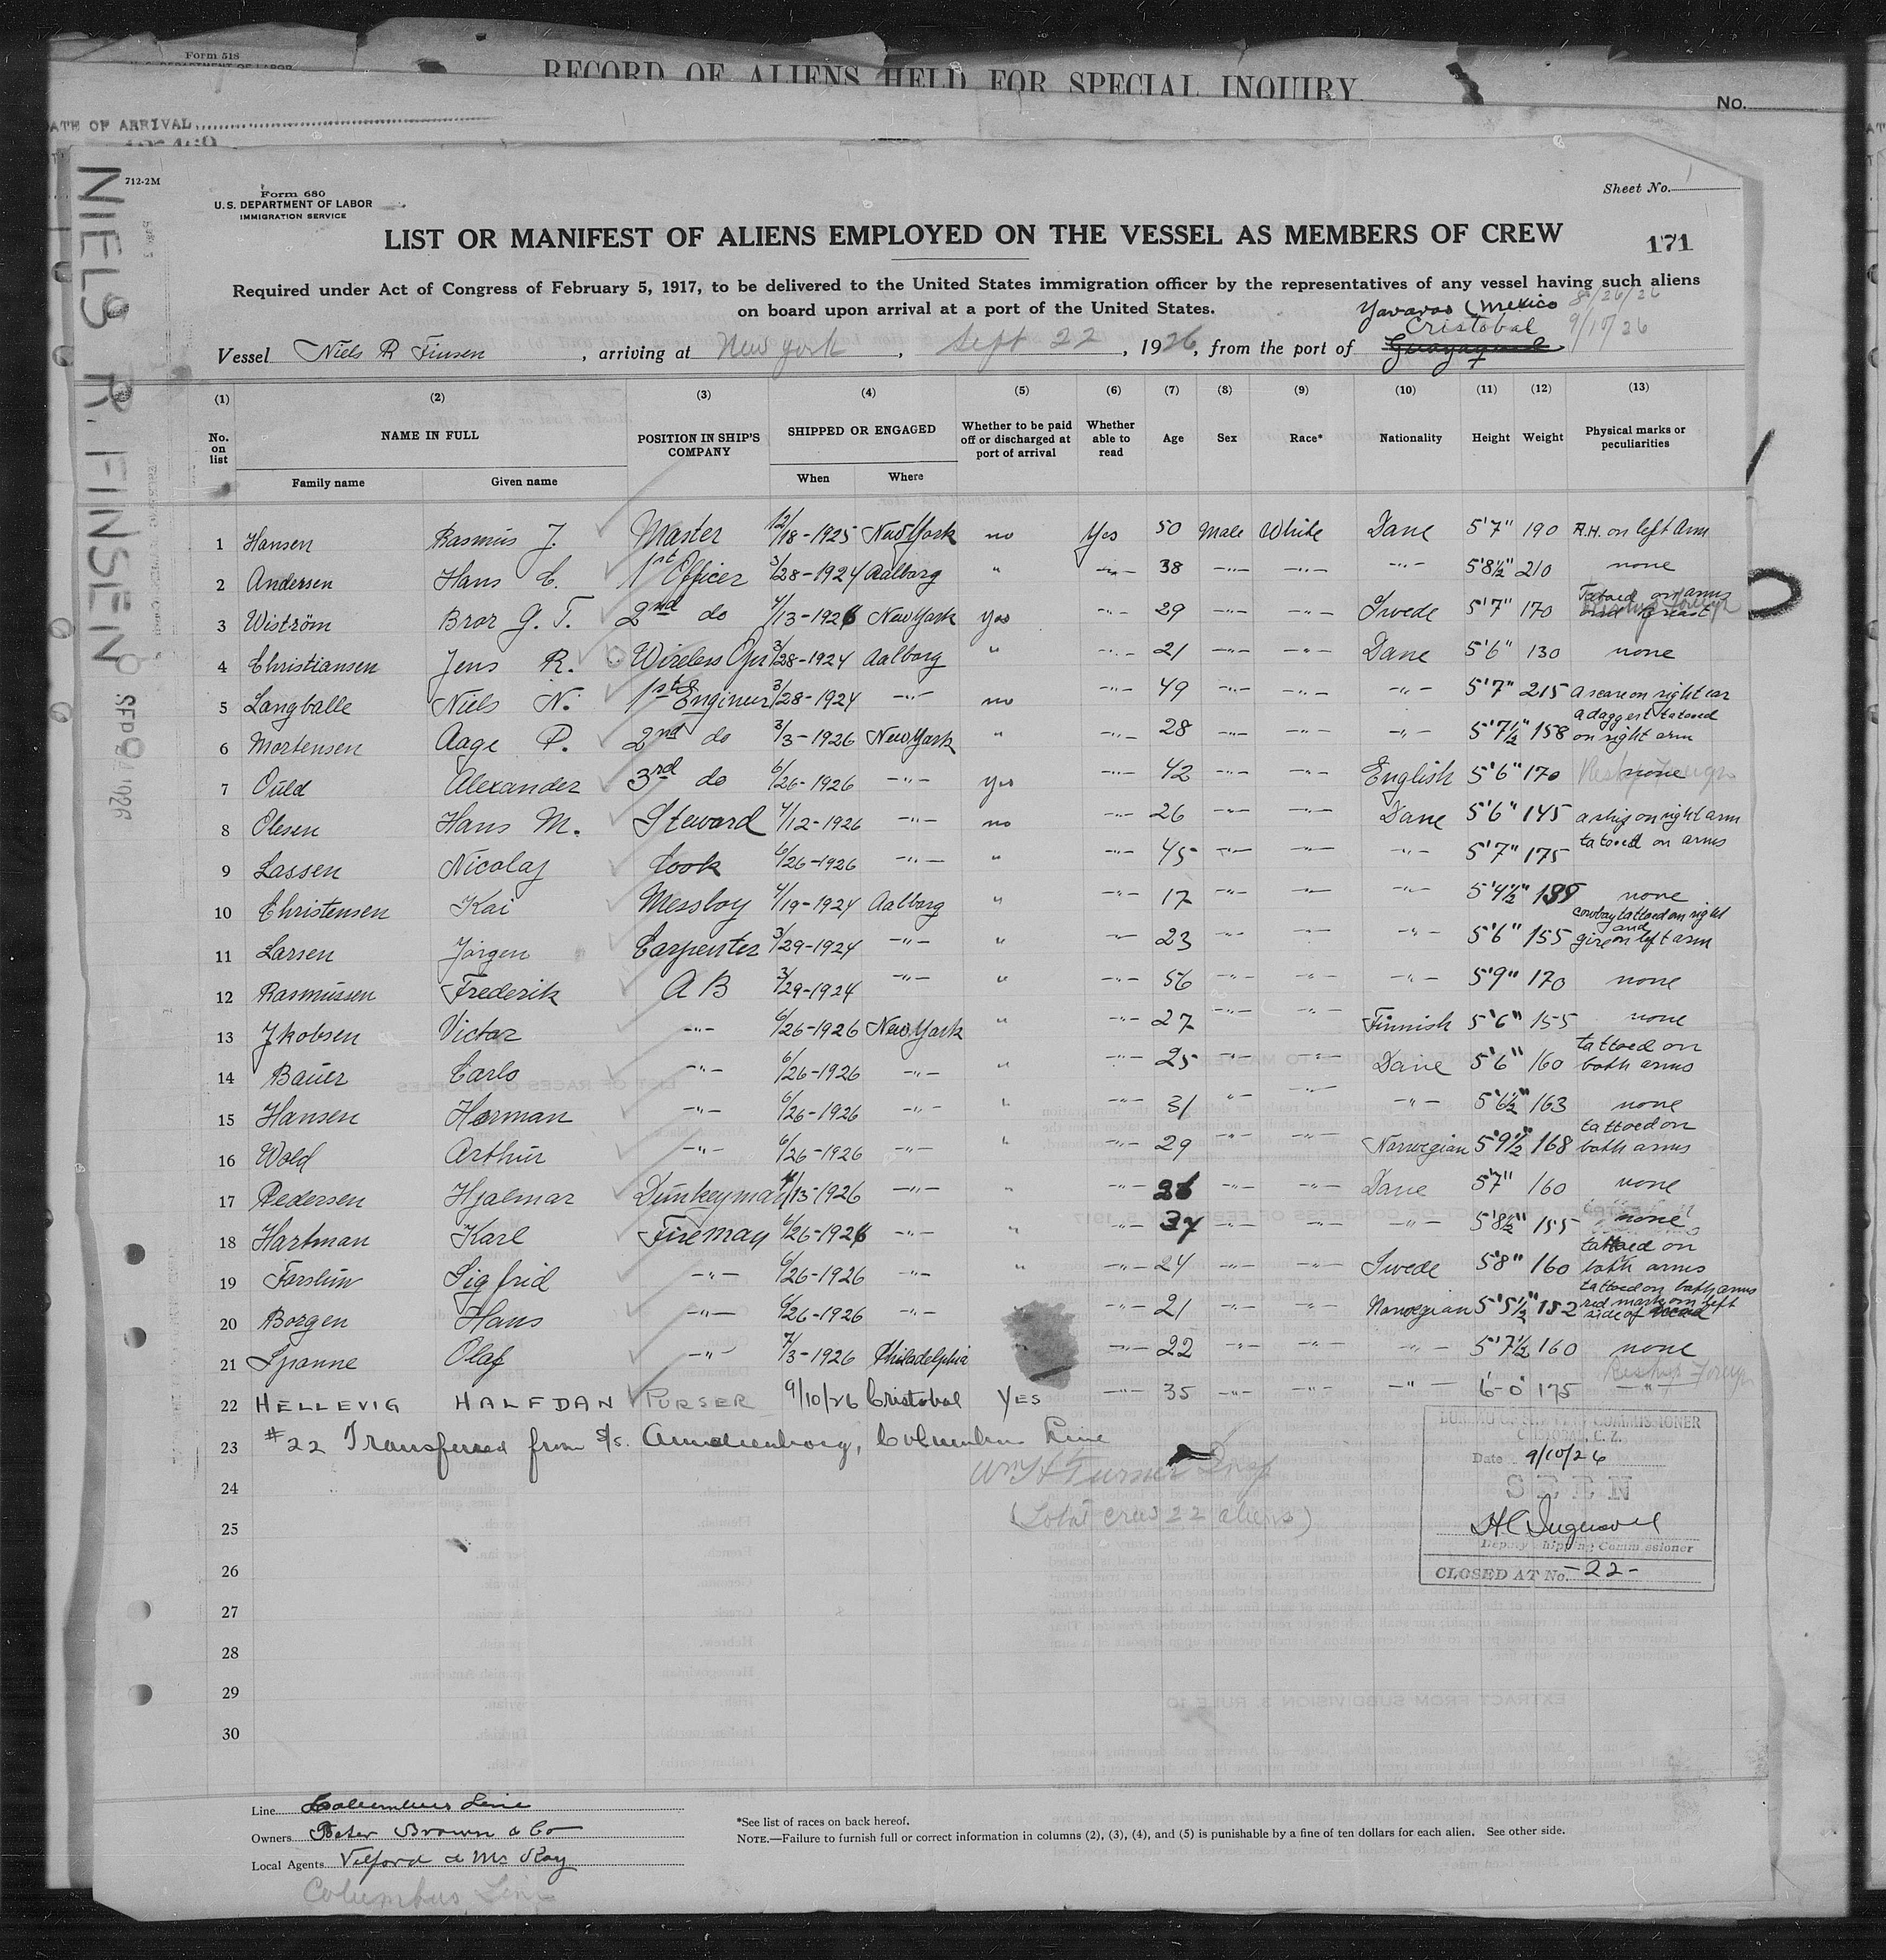 Form 518
RECORD OF ALIENS HELD FOR SPECIAL INQUIRY
No.
DATE OF ARRIVAL
NIELS R. FINSEN
SEP 1926
712-2M
Form 680
U.S. DEPARTMENT OF LABOR
IMMIGRATION SERVICE
Sheet No. 1
LIST OR MANIFEST OF ALIENS EMPLOYED ON THE VESSEL AS MEMBERS OF CREW
171
Required under Act of Congress of February 5, 1917, to be delivered to the United States immigration officer by the representatives of any vessel having such aliens
on board upon arrival at a port of the United States.
Yavaros (Mexico 8/26/26
Cristobal 9/10/26
Vessel Niels R Finsen, arriving at New York, Sept 22, 1926, from the port of Guayaquil
(1) (2) (3) (4) (5) (6) (7) (8) (9) (10) (11) (12) (13)
No. on list NAME IN FULL POSITION IN SHIP'S COMPANY SHIPPED OR ENGAGED Whether to be paid off or discharged at port of arrival Whether able to read Age Sex Race* Nationality Height Weight Physical marks or peculiarities
Family name Given name When Where
1 Hansen Rasmus J. Master 12/18-1925 New York no Yes 50 Male White Dane 5'7" 190 R.H. on left arm
2 Andersen Hans C. 1st Officer 3/28-1924 Aalborg " -"- 38 -"- -"- -"- 5'8½" 210 none
3 Wiström Bror G. T. 2nd do 4/13-1926 New York Yes -"- 29 -"- -"- Swede 5'7" 170 Tatoed on arms and breast
4 Christiansen Jens R. Wireless Opr 3/28-1924 Aalborg " -"- 21 -"- -"- Dane 5'6" 130 none
5 Langballe Niels N. 1st Engineer 3/28-1924 -"- no -"- 49 -"- -"- -"- 5'7" 215 a scare on right ear
6 Mortensen Aage P. 2nd do 3/3-1926 New York " -"- 28 -"- -"- -"- 5'7½" 158 a daggert tatoed on right arm
7 Ould Alexander 3rd do 6/26-1926 -"- yes -"- 42 -"- -"- English 5'6" 170 none
8 Olesen Hans M. Steward 4/12-1926 -"- no -"- 26 -"- -"- Dane 5'6" 145 a ship on right arm
9 Lassen Nicolaj Cook 6/26-1926 -"- " -"- 45 -"- -"- -"- 5'7" 175 tatoed on arms
10 Christensen Kai Messboy 4/19-1924 Aalborg " -"- 17 -"- -"- -"- 5'4½" none
11 Larsen Jørgen Carpenter 3/29-1924 -"- " -"- 23 -"- -"- -"- 5'6" 155 cowboy tattoed on right and on left arm
12 Rasmussen Frederik A B 3/29-1924 -"- " -"- 56 -"- -"- -"- 5'9" 170 none
13 Jkobsen Victor -"- 6/26-1926 New York " -"- 27 -"- -"- Finnish 5'6" 155 none
14 Bauer Carlo -"- 6/26-1926 -"- " -"- 25 -"- -"- Dane 5'6" 160 tattoed on both arms
15 Hansen Herman -"- 6/26-1926 -"- " -"- 31 -"- -"- -"- 5'6½" 163 none
16 Wold Arthur -"- 6/26-1926 -"- " -"- 29 -"- -"- Norwegian 5'9½" 168 tattoed on both arms
17 Pedersen Hjalmar Dunkeyman 4/13-1926 -"- " -"- 26 -"- -"- Dane 5'7" 160 none
18 Hartman Karl Fireman 6/26-1926 -"- " -"- 37 -"- -"- -"- 5'8½" 155 none
19 Forslun Sigfrid -"- 6/26-1926 -"- " -"- 24 -"- -"- Swede 5'8" 160 tattoed on both arms
20 Borgen Hans -"- 6/26-1926 -"- -"- 21 -"- -"- Norwegian 5'5½" 152 tattoed on both arms red mark on left side of
21 Spanne Olaf -"- 7/3-1926 Philadelphia -"- 22 -"- -"- -"- 5'7½ 160 none
22 HELLEVIG HALFDAN PURSER 9/10/26 Cristobal YES -"- 35 -"- -"- -"- 6'-0" 175 -"-
23 #22 Transferred from S/s. Amalienborg, Columbus Line
24 Wm H Turner Insp
25 (Total crew 22 aliens)
26
27
28
29
30
SHIPPING COMMISSIONER
CRISTOBAL, C. Z.
Date 9/10/26
SEEN
H C Ingersoll
Deputy Shipping Commissioner
CLOSED AT No. -22-
Line Columbus Line
Owners Peter Brown & Co
Local Agents Velford & Mc Kay
Columbus Line
*See list of races on back hereof.
NOTE.—Failure to furnish full or correct information in columns (2), (3), (4), and (5) is punishable by a fine of ten dollars for each alien. See other side.